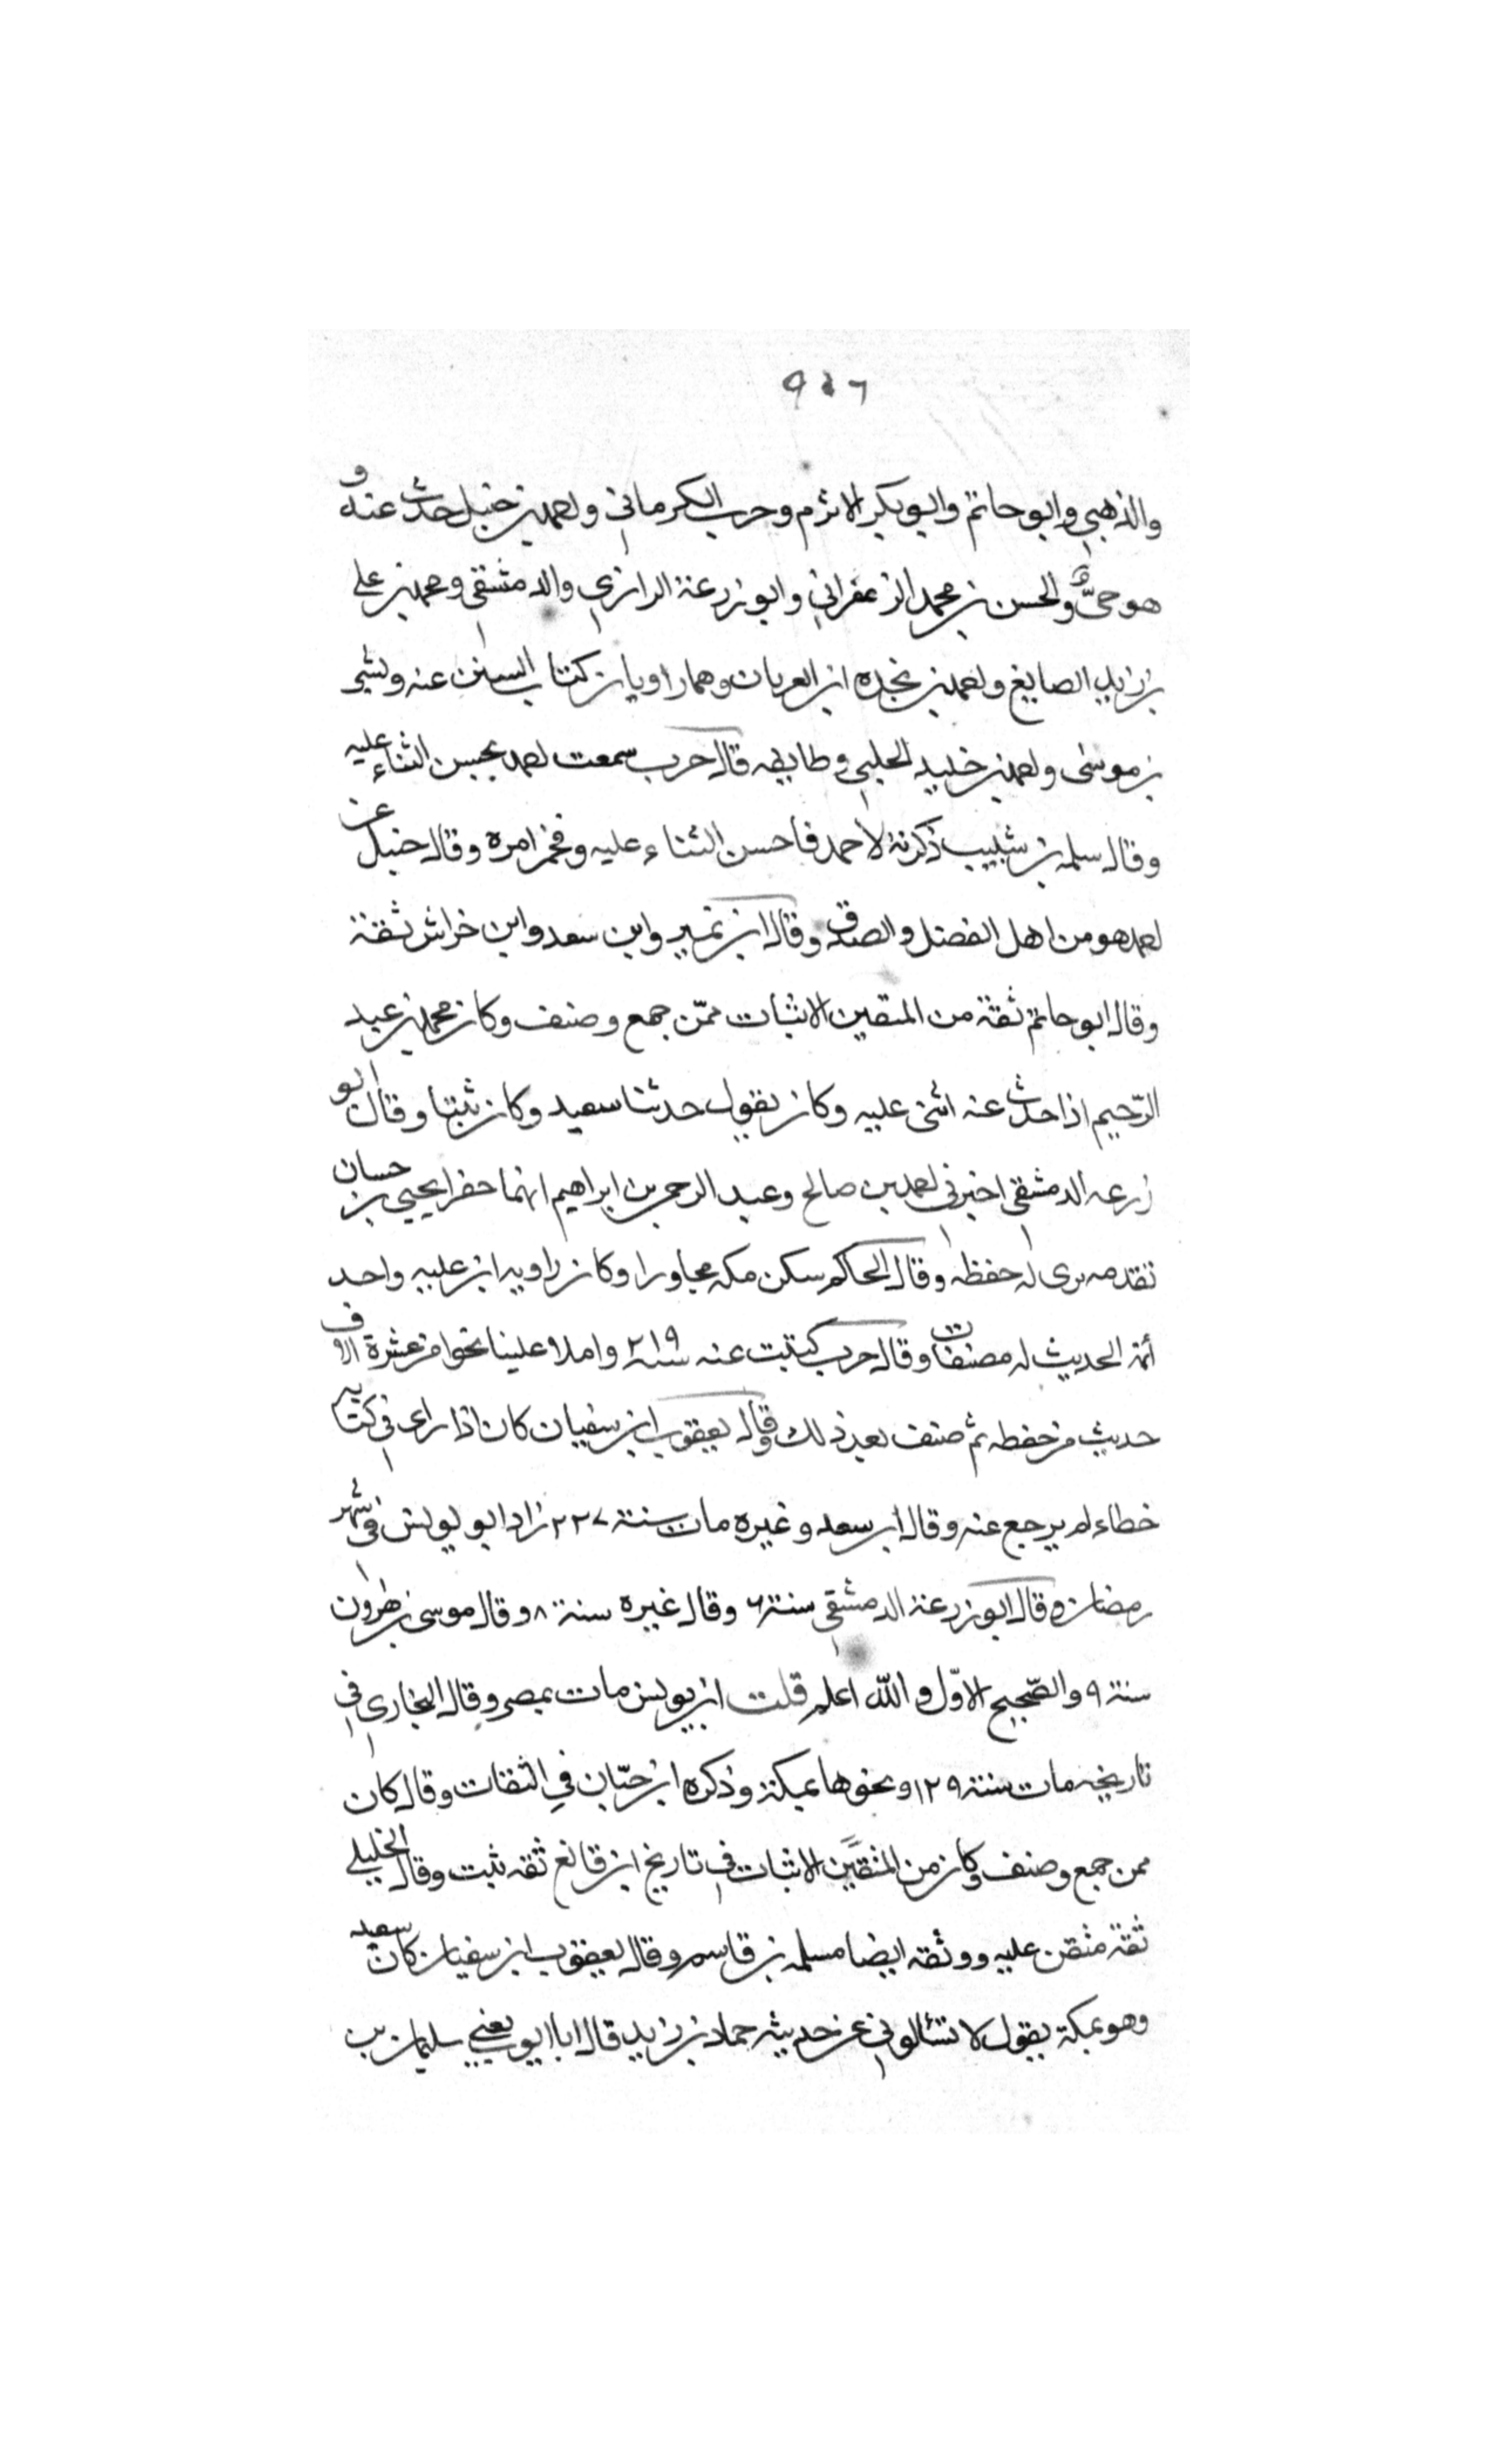 ٩٤٦
والذهبي وابو حاتم وابو بكر الاثرم وحرب الكرماني واحمد بن حنبل حدث عنه و
هو حيٌّ والحسن بن محمد الزعفراني وابو زرعة الرازي والدمشقي ومحمد بن علي
بن زيد الصايغ واحمد بن نجده ابن العريان وهما راويان كتاب السنن عنه وبشر
بن موسى واحمد بن خليد الحلبي وطايفه قال حرب سمعت احمد يحسن الثناء عليه
وقال سلمه بن شبيب ذكرته لاحمد فاحسن الثناء عليه وفخم امره وقال حنبل عن
احمد هو من اهل الفضل والصدق وقال ابن نمير وابن سعد وابن خراش ثقة
وقال ابو حاتم ثقة من المتقين الاثبات ممّن جمع وصنف وكان محمد بن عبد
الرّحيم اذا حدث عنه اثنى عليه وكان يقول حدثنا سعيد وكان ثبتا وقال ابو
زرعه الدمشقي اخبرني احمد بن صالح وعبد الرحمن بن ابراهيم انهما حضرا يحيى بن حسان
تقدمه يرى له حفظه وقال الحاكم سكن مكه مجاورا وكان راويه ابن عليه واحد
أئمة الحديث له مصنفات وقال حرب كتبت عنه سنة ٢١٩ واملا علينا نحوا من عشرة الاف
حديث من حفظه ثم صنف بعد ذلك وقال يعقوب ابن سفيان كان اذا راى في كتابه
خطاء لم يرجع عنه وقال ابن سعد وغيره مات سنة ٢٢٧ زاد ابو يونس في شهر
رمضان وقال ابو زرعة الدمشقي سنة ٦ وقال غيره سنة ٨ وقال موسى بن هرون
سنة ٩ والصّحيح الاوّل والله اعلم قلت ابن يونس مات بمصر وقال البخاري في
تاريخه مات سنة ١٢٩ ونحوها بمكة وذكره ابن حبّان في الثقات وقال كان
ممن جمع وصنف وكان من المتقين الاثبات في تاريخ ابن قانع ثقه ثبت وقال الخليلي
ثقة متفق عليه ووثقه ايضا مسلمه بن قاسم وقال يعقوب ابن سفيان كان سعيد
وهو بمكة يقول لا تسالوني عن حديث حماد بن زيد قال ابا ايوب يعني سليمان بن